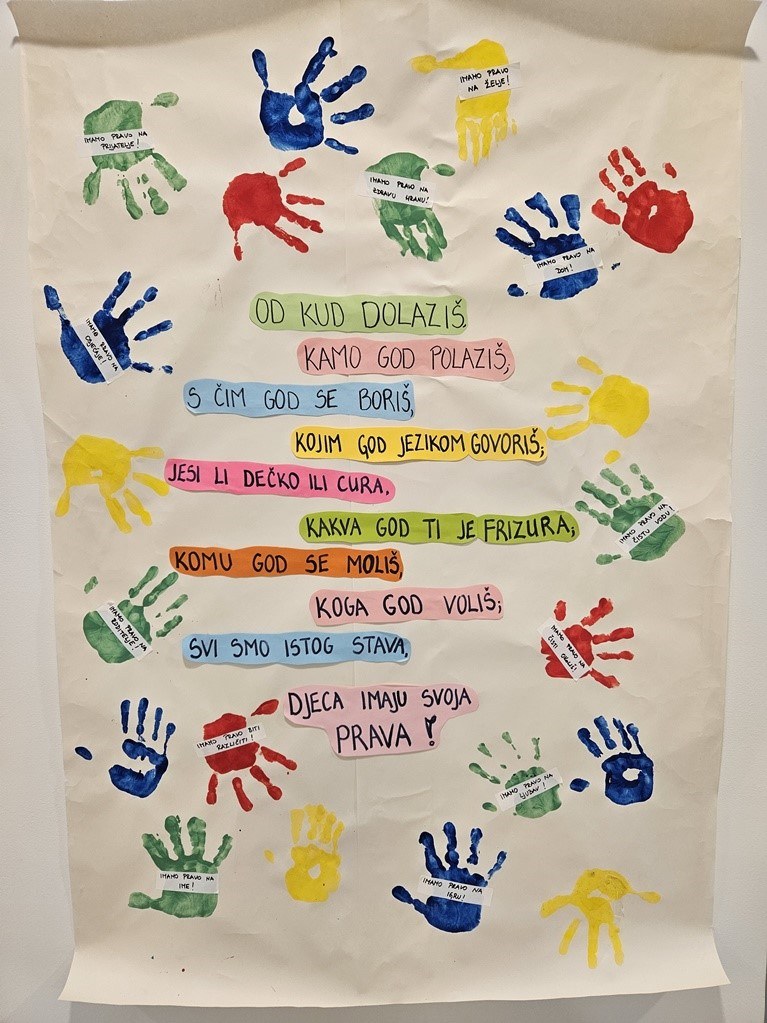 IMAMO PRAVO
NA ŽELJE!
IMAMO PRAVO NA
PRIJATELJE!
IMAMO PRAVO NA
ZDRAVU HRANU!
IMAMO PRAVO NA
DOM!
IMAMO PRAVO NA
OSJEĆAJE!
OD KUD DOLAZIŠ,
KAMO GOD POLAZIŠ,
S ČIM GOD SE BORIŠ,
KOJIM GOD JEZIKOM GOVORIŠ;
JESI LI DEČKO ILI CURA,
KAKVA GOD TI JE FRIZURA;
KOMU GOD SE MOLIŠ,
KOGA GOD VOLIŠ;
SVI SMO ISTOG STAVA,
DJECA IMAJU SVOJA
PRAVA!
IMAMO PRAVO NA
ČISTU VODU!
IMAMO PRAVO NA
RODITELJE!
IMAMO PRAVO NA
ČISTI OKOLIŠ!
IMAMO PRAVO BITI
RAZLIČITI!
IMAMO PRAVO NA
LJUBAV!
IMAMO PRAVO NA
IME!
IMAMO PRAVO NA
IGRU!